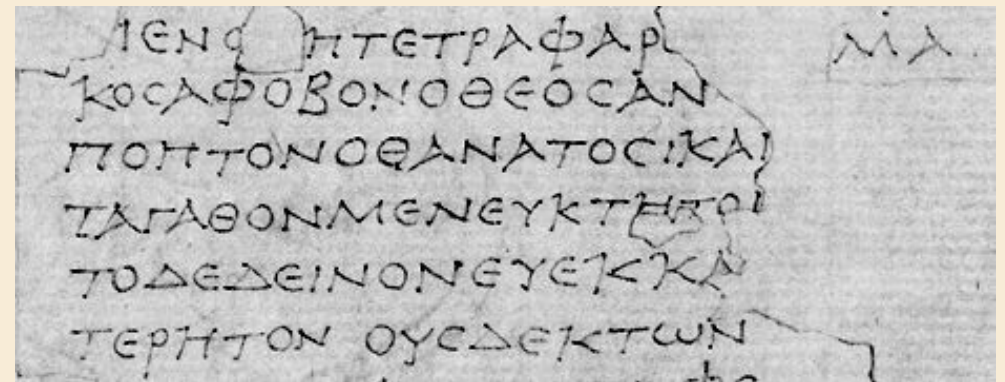 ΙΕΝΟ ΗΤΕΤΡΑΦΑΡ ΜΑ
ΚΟϹΑΦΟΒΟΝΟΘΕΟϹΑΝ
ΠΟΗΤΟΝΟΘΑΝΑΤΟϹΙΚΑΙ
ΤΑΓΑΘΟΝΜΕΝΕΥΚΤΗΤΟΙ
ΤΟΔΕΔΕΙΝΟΝΕΥΕΚΚΑ
ΤΕΡΗΤΟΝ ΟΥϹΔΕΚΤΩΝ